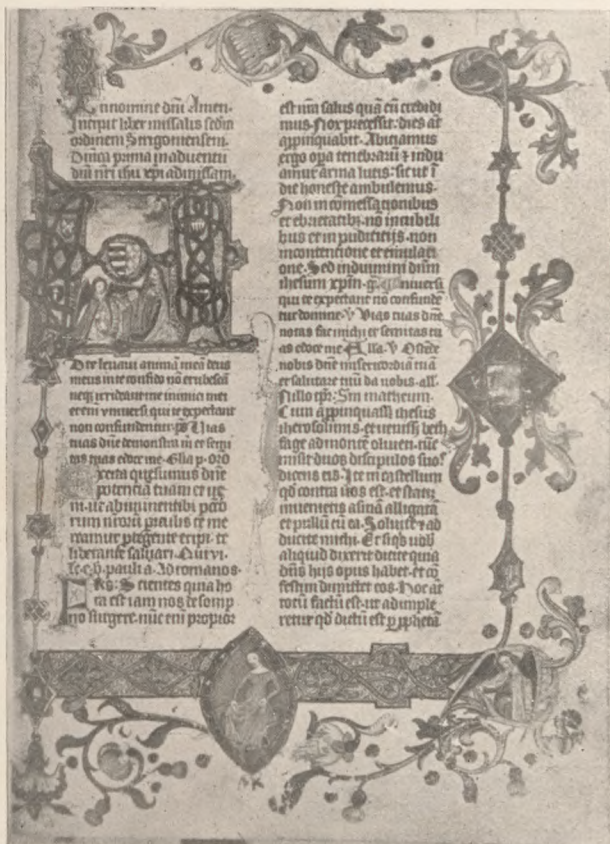 In nomine dnī Amen.
Incipit liber missalis scdm
ordinem Strigoniensem.
Dnica prima in adventu
dnī nrī ihu xpi ad missam.
D te levavi animā meā deus
meus in te confido nō erubescā
neqȝ irrideant me inimici mei
etenī vniversi qui te expectant
non confundentur. Vias
tuas dnē demonstra mi et semi
tas tuas edoce me. Glīa p.
xcita quesumus dnē
potentiā tuam et ve
ni. ut ab iminentibȝ pctō
rum nrōrū piculis te me
reamur ptegente eripi. te
liberante salvari. Qui vi
pauli a. Ad romanos.
Scientes quia ho
ra est iam nos de somp
no surgere. nūc enī propior
est nrā salus quā cū credidi
mus. Nox precessit. dies aūt
appinquabit. Abiciamus
ergo opa tenebrarū et indu
amur arma lucis. sicut ī
die honeste ambulemus.
Non in comessacionibus
et ebrietatibȝ. nō in cubili
bus et inpudicicijs. non
in contencione et emulaci
one. Sed induimini dnm
ihesum xpm. vniversi
qui te expectant nō confundē
tur domine. v Vias tuas dnē
notas fac michi et semitas tu
as edoce me. Alla. v Ostēde
nobis dnē misericordiā tuā
et salutare tuū da nobis. all.
In illo tpr. Sm matheum.
Cum appinquasset ihesus
iherosolimis. et venisset beth
fage ad montē oliveti. tūc
misit duos discipulos suos
dicens eis. Ite in castellum
qd contra vos est. et statī
invenietis asinā alligatā
et pullū cū ea. Solvite et ad
ducite michi. Et si qs vob
aliquid dixerit dicite quia
dns hijs opus habet. et cō
festim dimittet eos. Hoc aūt
totū factū est. ut adimple
retur qd dictū est p prophetā